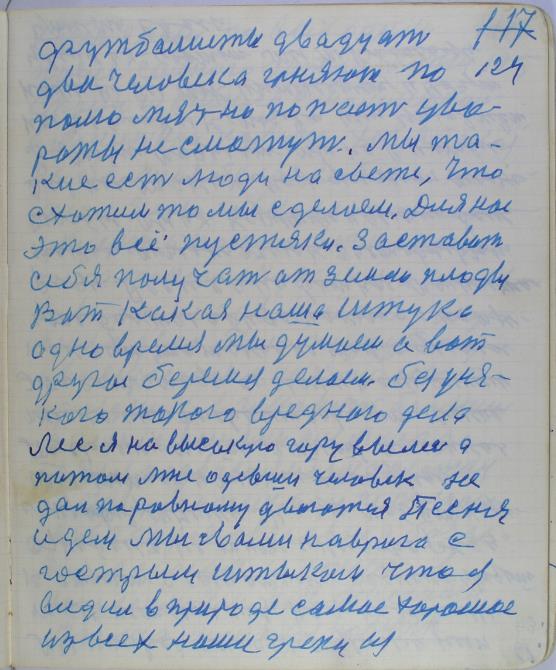 117
футболисты двадцат
два человека гоняют по 124
полю мяч но попасть у во-
роты не смогут. Мы та-
кие ест люди на свете, что
схотим то мы сделаем. Для нас
это всё пустяки. Заставит
себя получат от земли плоды
Вот какая наша штука
одно время мы думаем а вот
другое беремся делаем. без уня-
кого такого вредного дела
Лес я на высокую гору вылез а
потом мне один человек не
дал по ровному двигатся Песня
идем мы с вами на врага с
гострым штыком что я
видил в природе самое хорошое
из всех наши грехи и